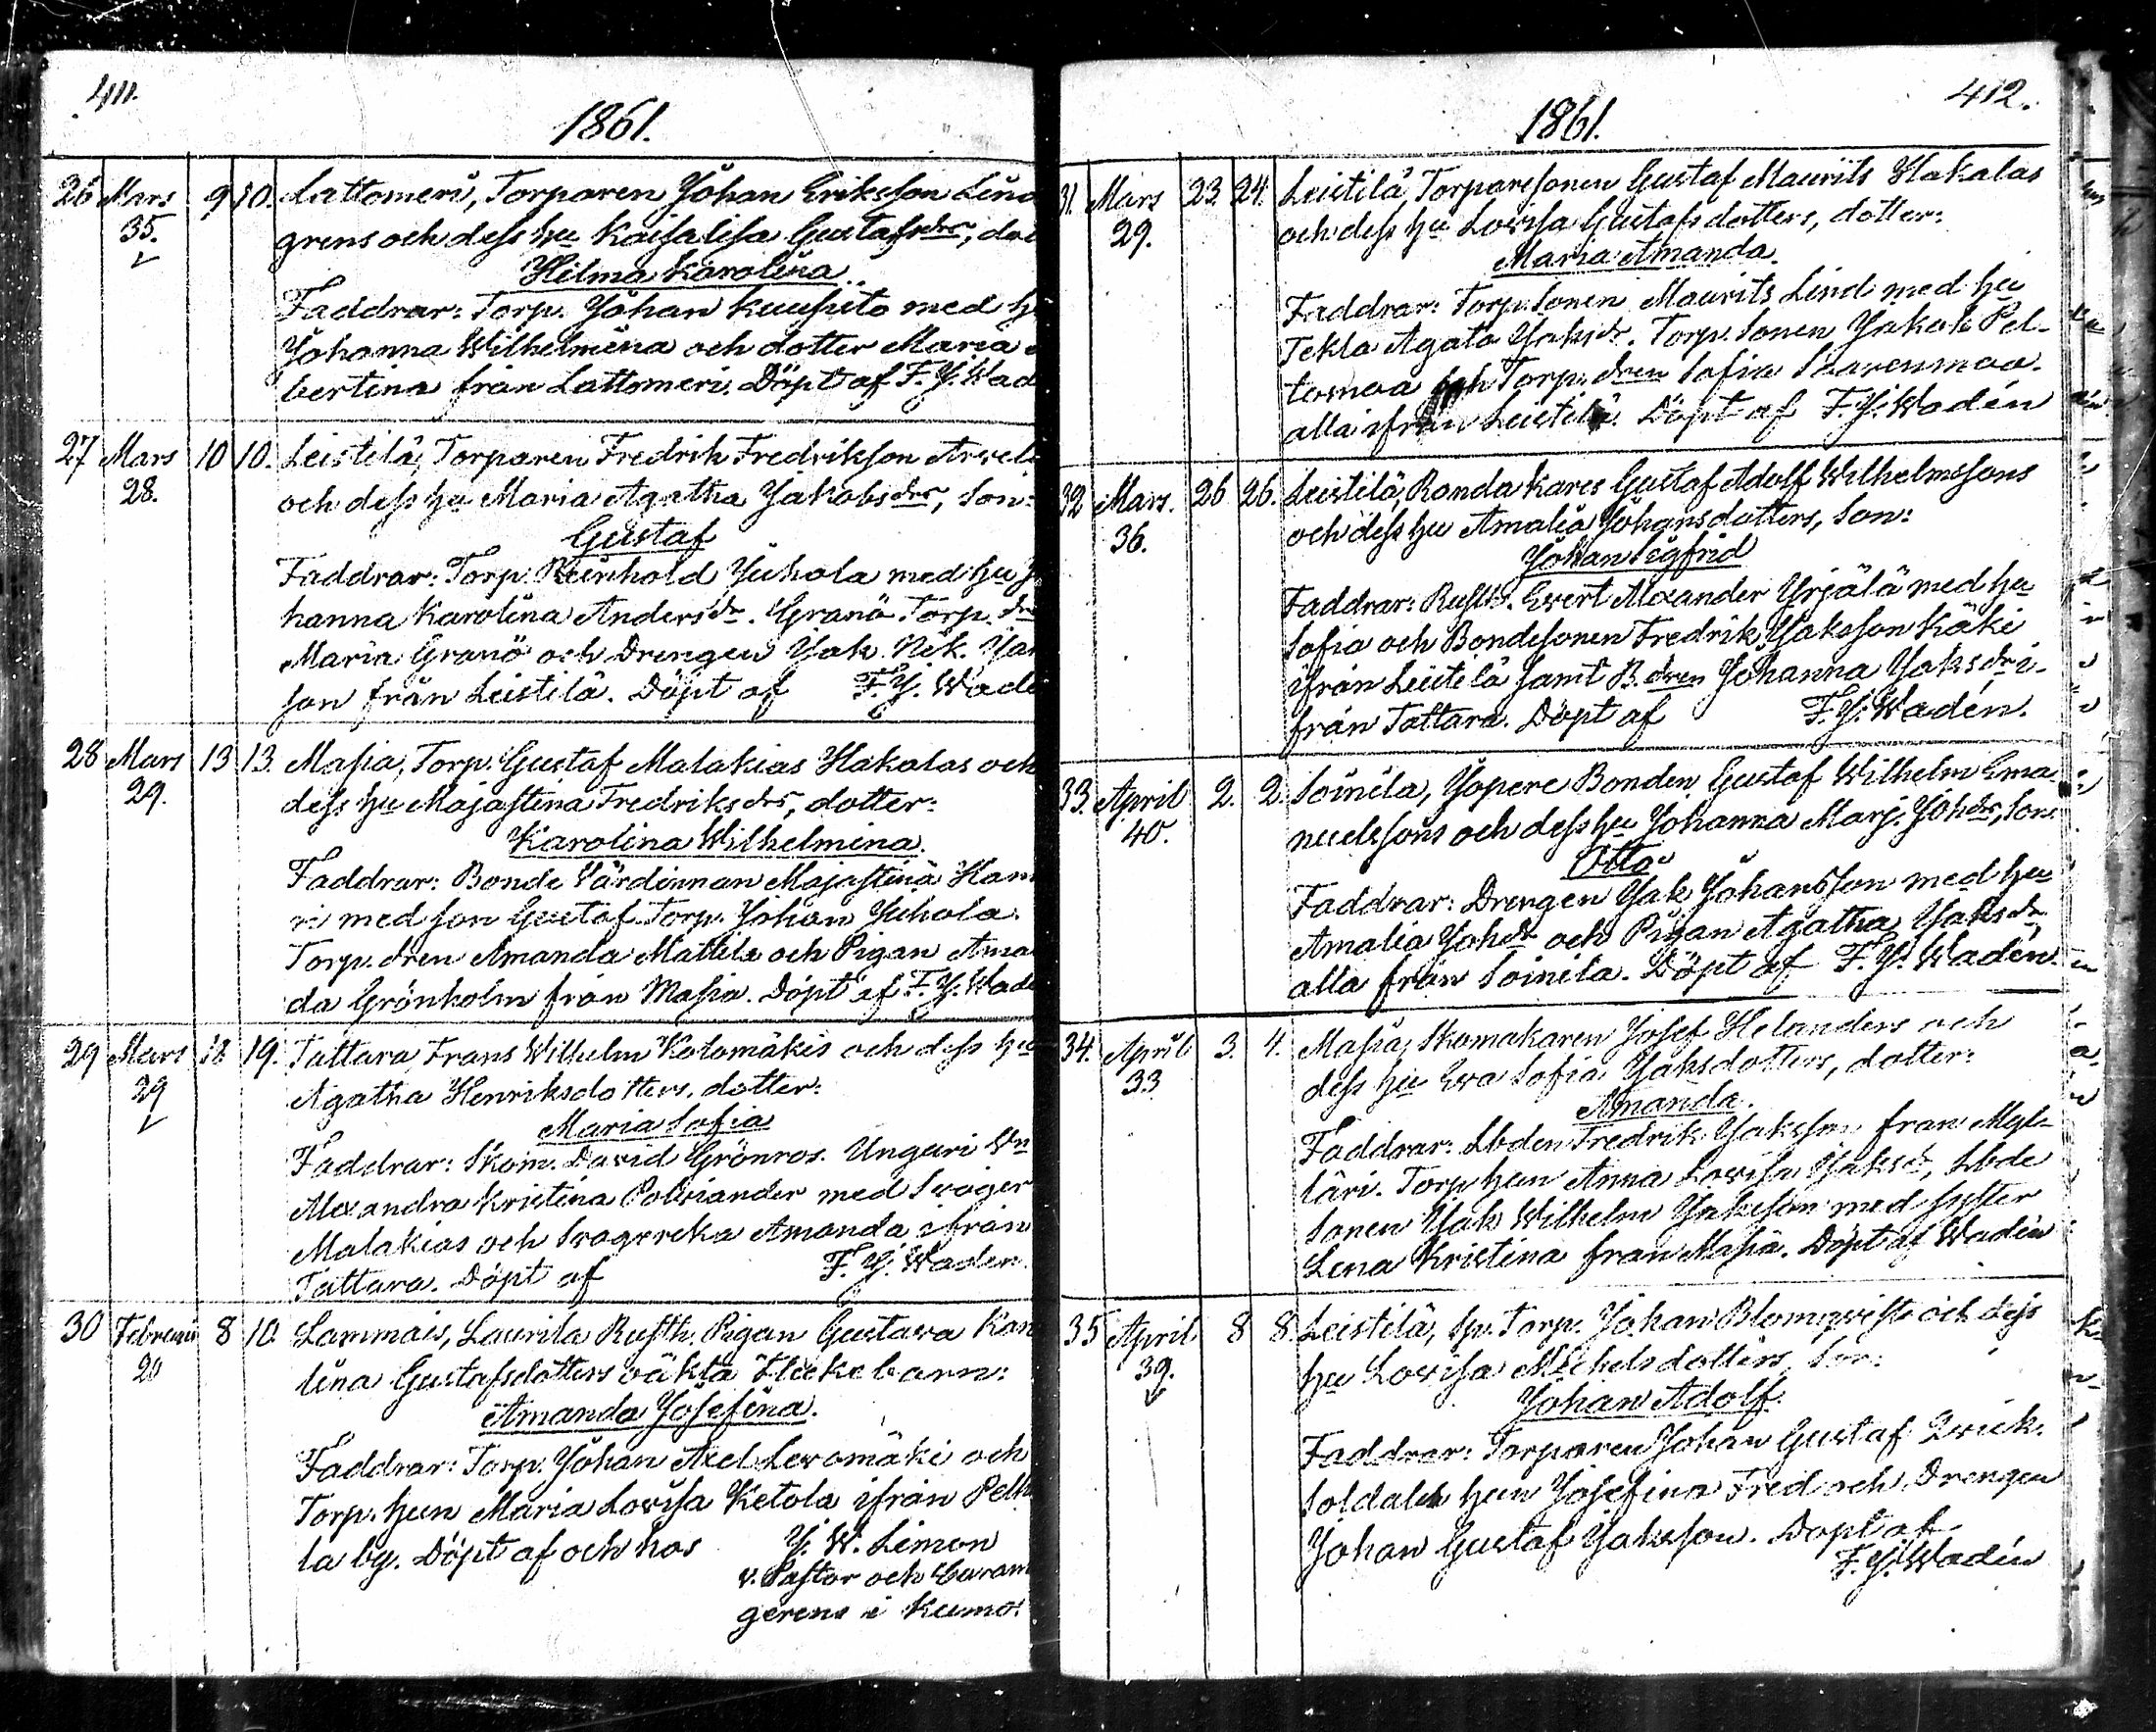 411.
1861.
26 Mars 9 10. Lattomeri, Torparen Johan Eriksson Lind
35. grens och dess hu Kaisalisa Gustafsdrs, dot
Hilma Karolina
Faddrar: Torp. Johan Kuusisto med h
Johanna Wilhelmina och dotter Maria
bertina från Lattomeri. Döpt af F. J. Wad
27 Mars 10 10. Leistilä, Torparen Fredrik Fredrikson Arvel
28. och dess hu Maria Agatha Jakobsdrs, Son:
Gustaf
Faddrar: Torp. Reinhold Juhola med hu Jo
hanna Karolina Andersdr. Granö Torp. dr
Maria Granö och Drengen Jak. Nik. Jak
son från Leistilä. Döpt af F. J. Wade
28 Mars 13 13. Masia, Torp. Gustaf Malakias Hakalas och
29. dess hu Majastina Fredriksdrs, dotter:
Karolina Wilhelmina.
Faddrar: Bonde Värdinnan Majastina Ham
ri med son Gustaf. Torp. Johan Juhola.
Torp. dren Amanda Mattila och Pigan Aman
da Grönholm från Masia. Döpt af F. J. Wade
29 Mars 18 19. Tattara, Frans Wilhelm Kotomäkis och dess hu
29 Agatha Henriksdotters, dotter:
Maria Sofia
Faddrar: Skom. David Grönros. Ungari Wn
Alexandra Kristina Polviander med Svoger
Malakias och Svogerska Amanda ifrån
Tattara. Döpt af F. J. Waden.
30 Februari 8 10. Lammais, Laurila Rusth. Pigan Gustava Kar
20 lina Gustafsdotters oäkta Flickebarn:
Amanda Josefina.
Faddrar: Torp. Johan Axel Levomäki och
Torp. hun Maria Lovisa Ketola ifrån Peth
la by. Döpt af och hos J. W. Limon
v. Pastor och
gerens i Kumo.
412.
1861.
31. Mars 23. 24. Leistilä, Torparesonen Gustaf Maurits Hakalas
29. och dess hu Lovisa Gustafsdotters, dotter:
Maria Amanda.
Faddrar: Torp. Sonen Maurits Lind med hu
Tekla Agata Jaksdr. Torp. Sonen Jakob Pel-
tomaa och Torp. dren Sofia Saarenmaa.
alla ifrån Leistilä. Döpt af F. J. Wadén
32 Mars. 26 26. Leistilä, Ronda kares Gustaf Adolf Wilhelmssons
36. och dess hu Amalia Johansdotters, Son:
Johan Sigfrid
Faddrar: Rusth. Evert Alexander Yrjälä med hu
Sofia och Bondesonen Fredrik Jaksson Käki
ifrån Leistilä samt B. dren Johanna Jaksdr i-
från Tattara. Döpt af F. J. Wadén.
33. April 2. 2. Soinila, Jopere Bonden Gustaf Wilhelm Ema-
40. nuelssons och dess hu Johanna Marj. Johdrs, Son:
Otto
Faddrar: Drengen Jak Johansson med hu
Amalia Johdr och Pigan Agatha Jaksdr,
alla från Soinila. Döpt af F. J. Wadén.
34. April 3. 4. Masia, Skomakaren Josef Helanders och
33 dess hu Eva Sofia Jaksdotters, dotter:
Amanda.
Faddrar: Lbden Fredrik Jaksson från Myl-
läri. Torp hun Anna Lovisa Jaksdr, Lbde
Sonen Jak Wilhelm Jaksson med syster
Lena Kristina från Masia. Döpt af Wadén
35 April 8 8. Leistilä, Sp. Torp. Johan Blomqvists och dess
39. hu Lovisa Mickelsdotters, Son:
Johan Adolf.
Faddrar: Torparen Johan Gustaf Qvick.
Soldates hun Josefina Fred och Drengen
Johan Gustaf Jaksson. Döpt af
F. J. Wadén